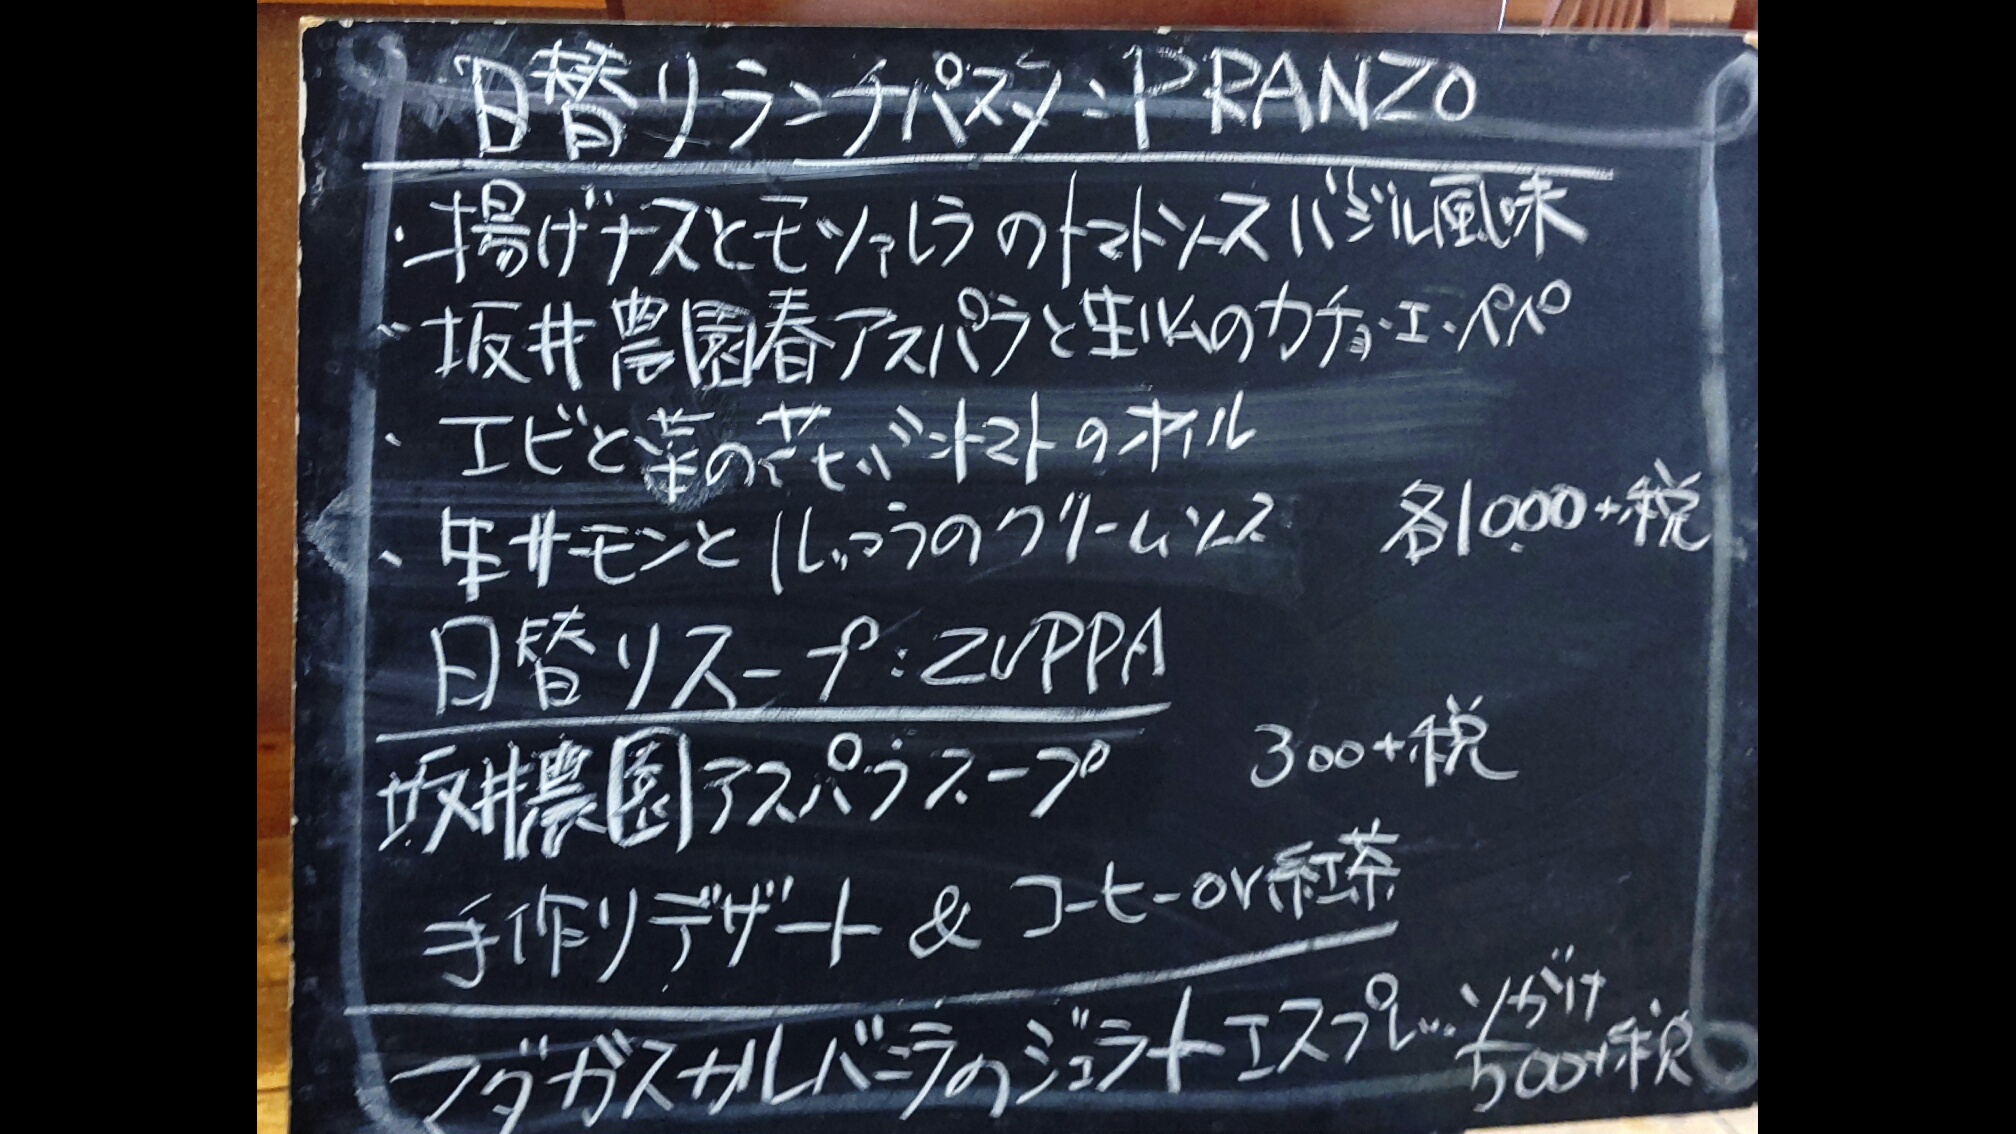 日替りランチパスタ:PRANZO
・揚げナスとモッツァレラのトマトソースバジル風味
・坂井農園春アスパラと生ハムのカチョ・エ・ペペ
・エビと菜の花セミドライトマトのオイル
・生サーモンとほうれんのクリームソース
各1,000+税
日替りスープ:ZUPPA
坂井農園アスパラスープ
300+税
手作りデザート & コーヒーor紅茶
マダガスカルバニラのジェラートエスプレッソがけ
500+税